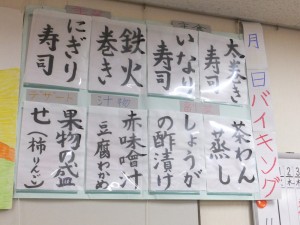 月 日 バイキング
太巻き
寿司
いなり
寿司
鉄火
巻き
にぎり
寿司
茶わん
蒸し
しょうが
の酢漬け
赤味噌汁
豆腐わかめ
果物の盛
せ(柿りんご)
デザート
汁物